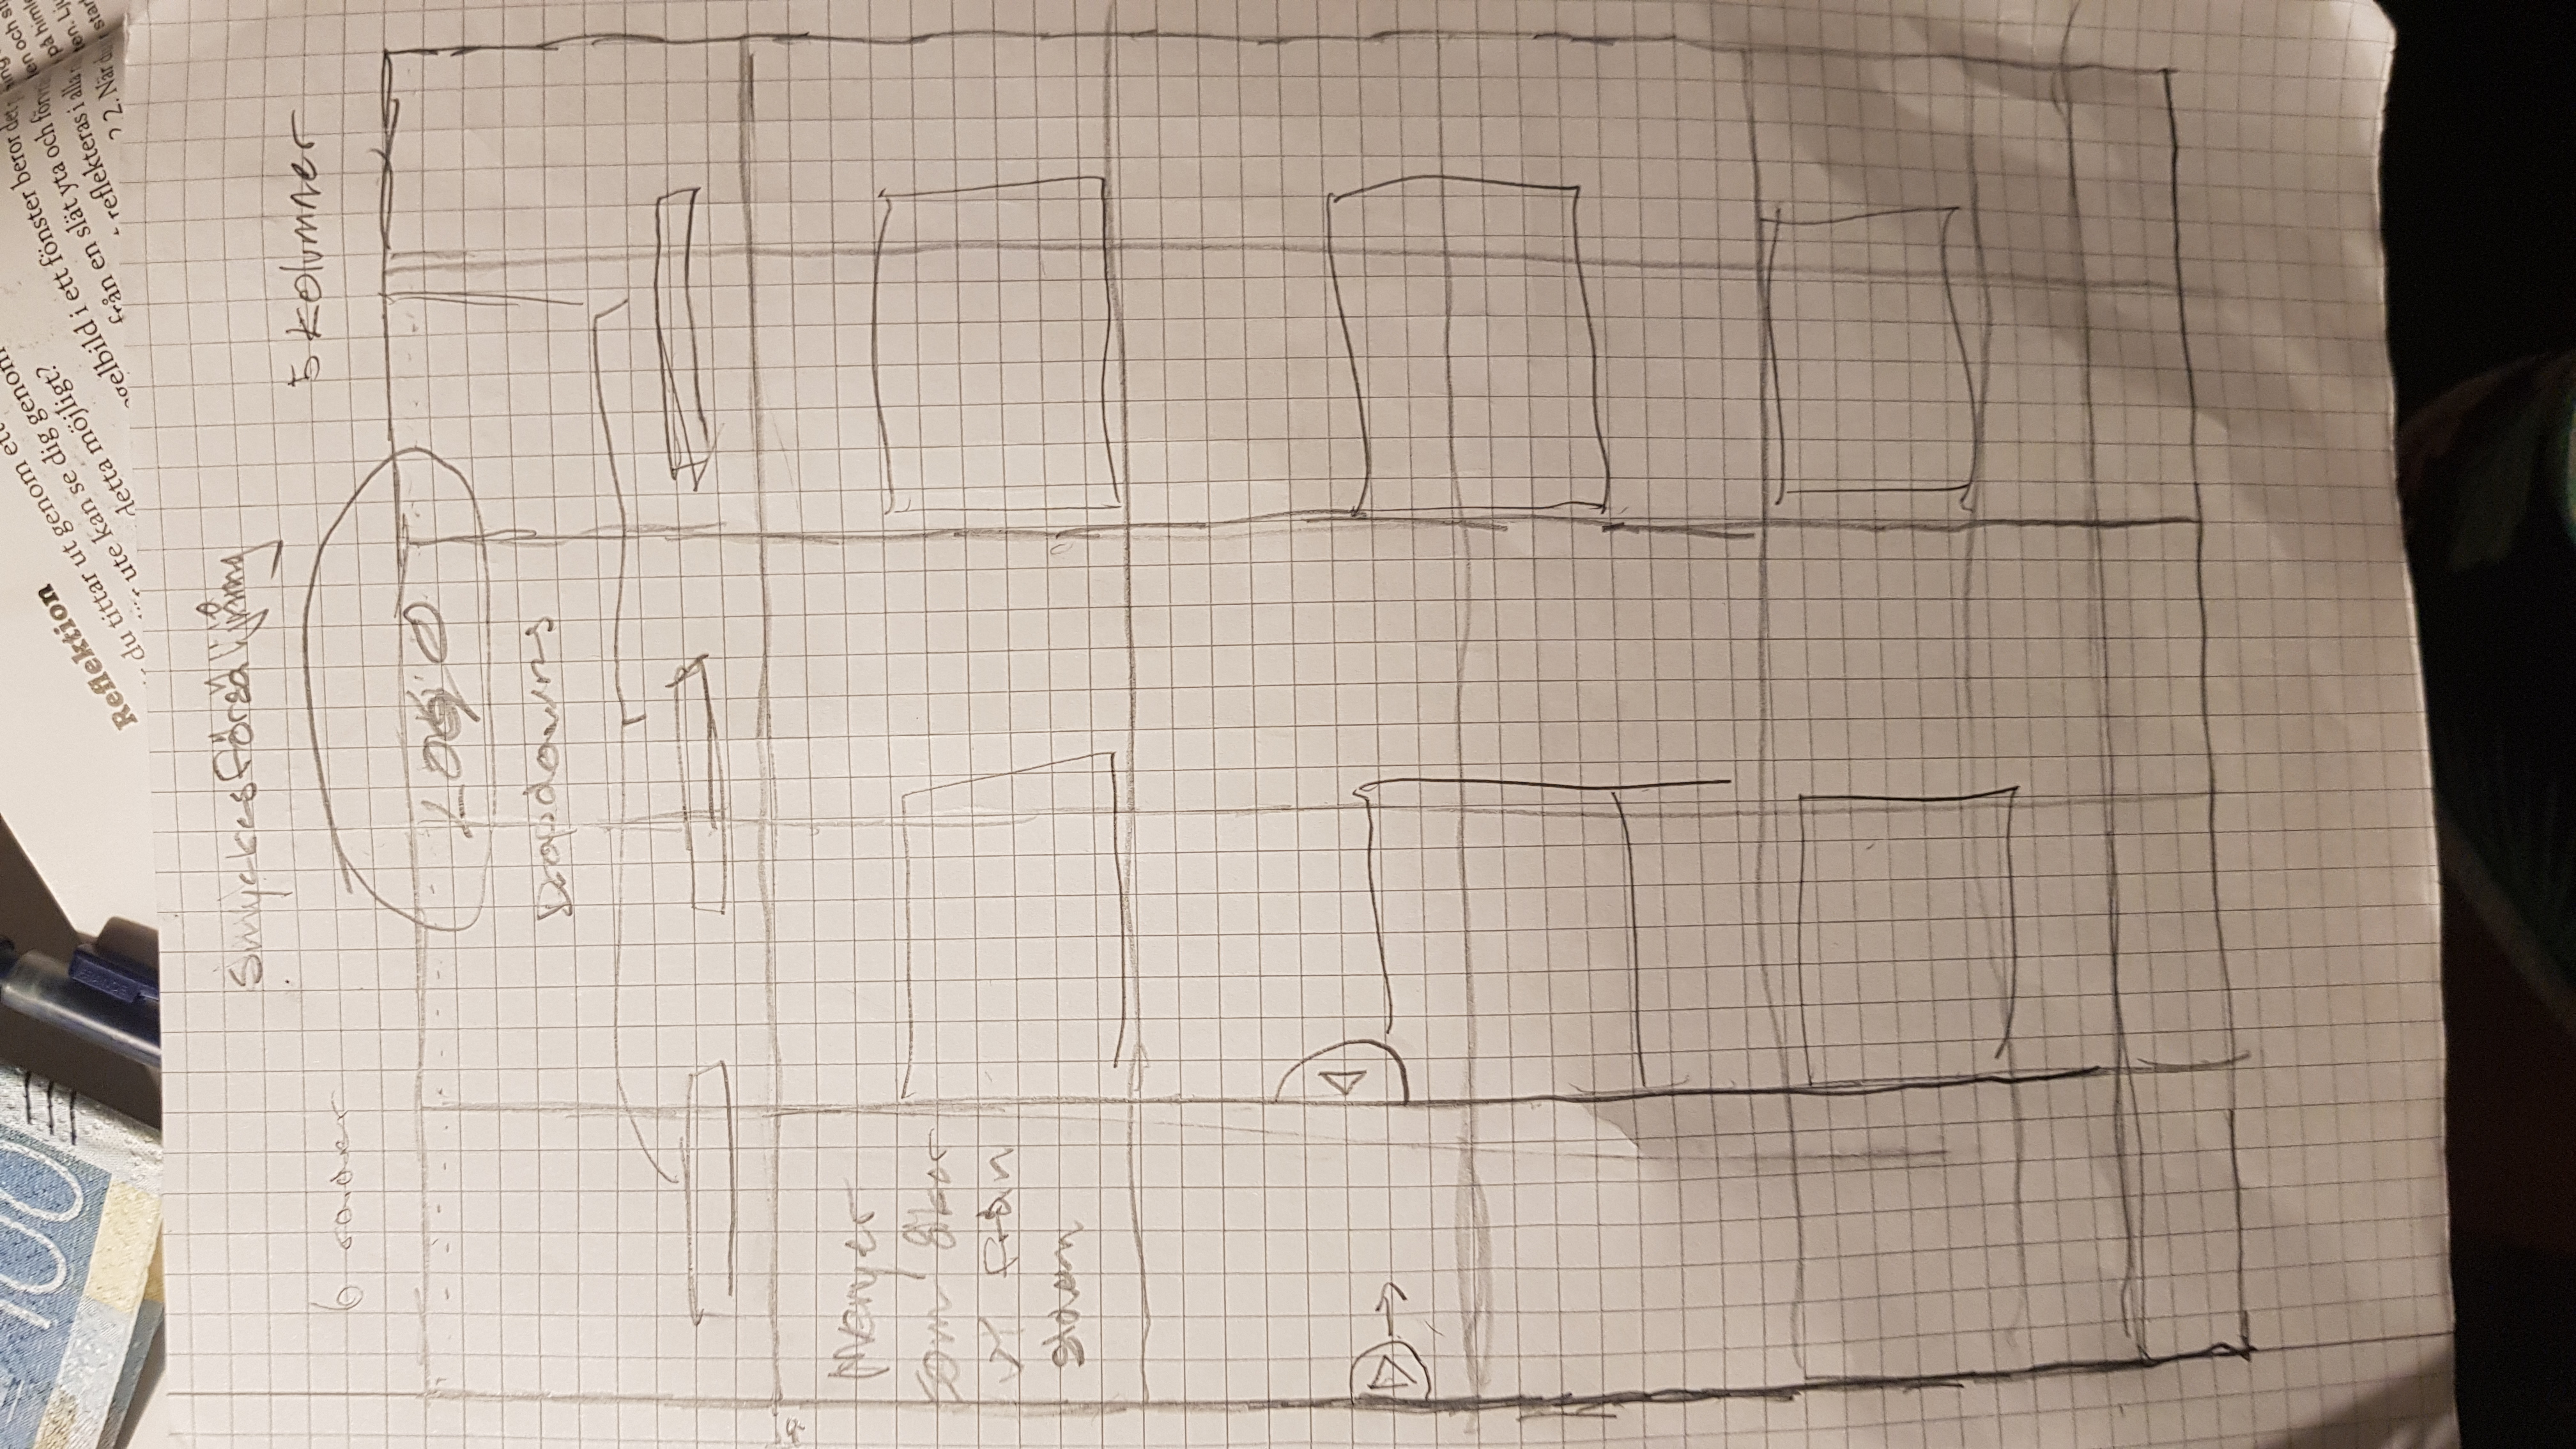 100
Reflektion
du tittar ut genom ett
ute kan se dig genom
detta möjligt?
gelbild i ett fönster beror det
från en slät yta och förvä
reflekteras i alla
2. När du
ing
en och st
på himle
ten. Lju
star
Smyckesförsäljning
6 rader
5 kolumner
LOGO
Dropdowns
Menyer
som åker
ut från
sidan